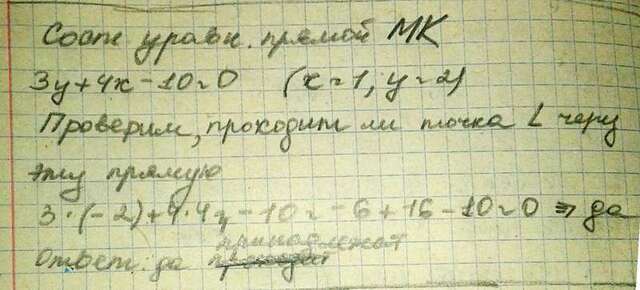 Сост уравн. прямой МК
3y+4x-10=0 (x=1, y=2)
Проверим, проходит ли точка L через
эту прямую
3·(-2)+4·4-10=-6+16-10=0 ⇒ да
принадлежат
Ответ: да